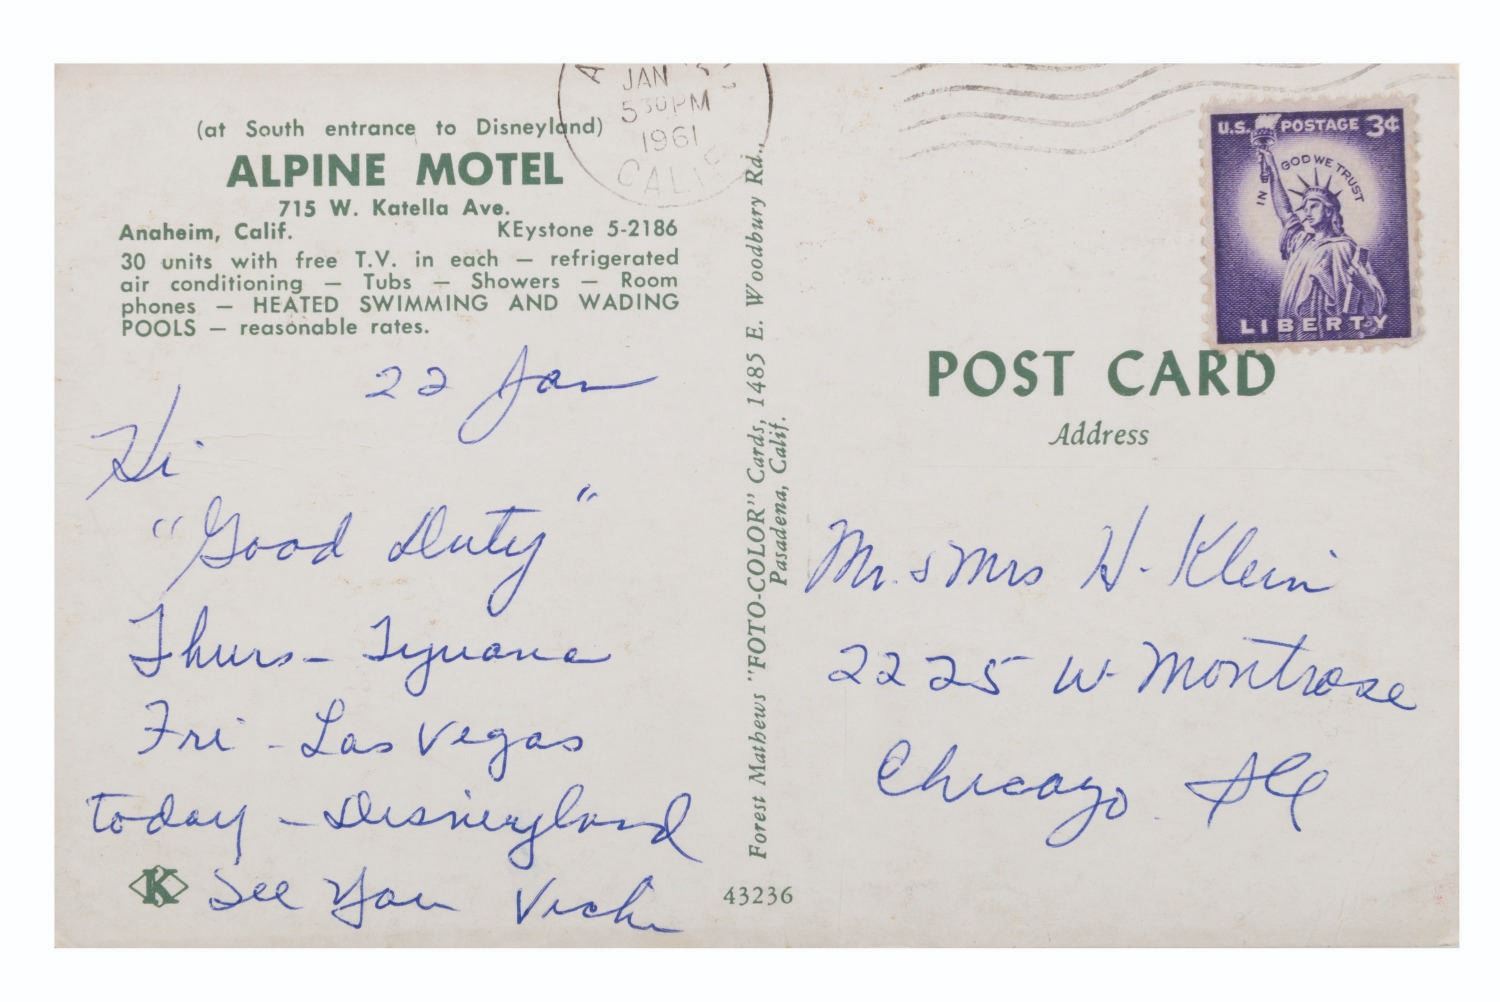 (at South entrance to Disneyland)
ALPINE MOTEL
715 W. Katella Ave.
Anaheim, Calif. KEystone 5-2186
30 units with free T.V. in each — refrigerated
air conditioning — Tubs — Showers — Room
phones — HEATED SWIMMING AND WADING
POOLS — reasonable rates.
22 Jan
Hi
"Good Duty"
Thurs - Tyuana
Fri - Las Vegas
today - Disneyland
See You Vicki
K
43236
Forest Mathews "FOTO-COLOR" Cards, 1485 E. Woodbury Rd.,
Pasadena, Calif.
JAN
5 30 PM
1961
CALIF
U.S. POSTAGE 3¢
IN GOD WE TRUST
LIBERTY
POST CARD
Address
Mr. & Mrs H. Klein
2225 W. Montrose
Chicago Ill